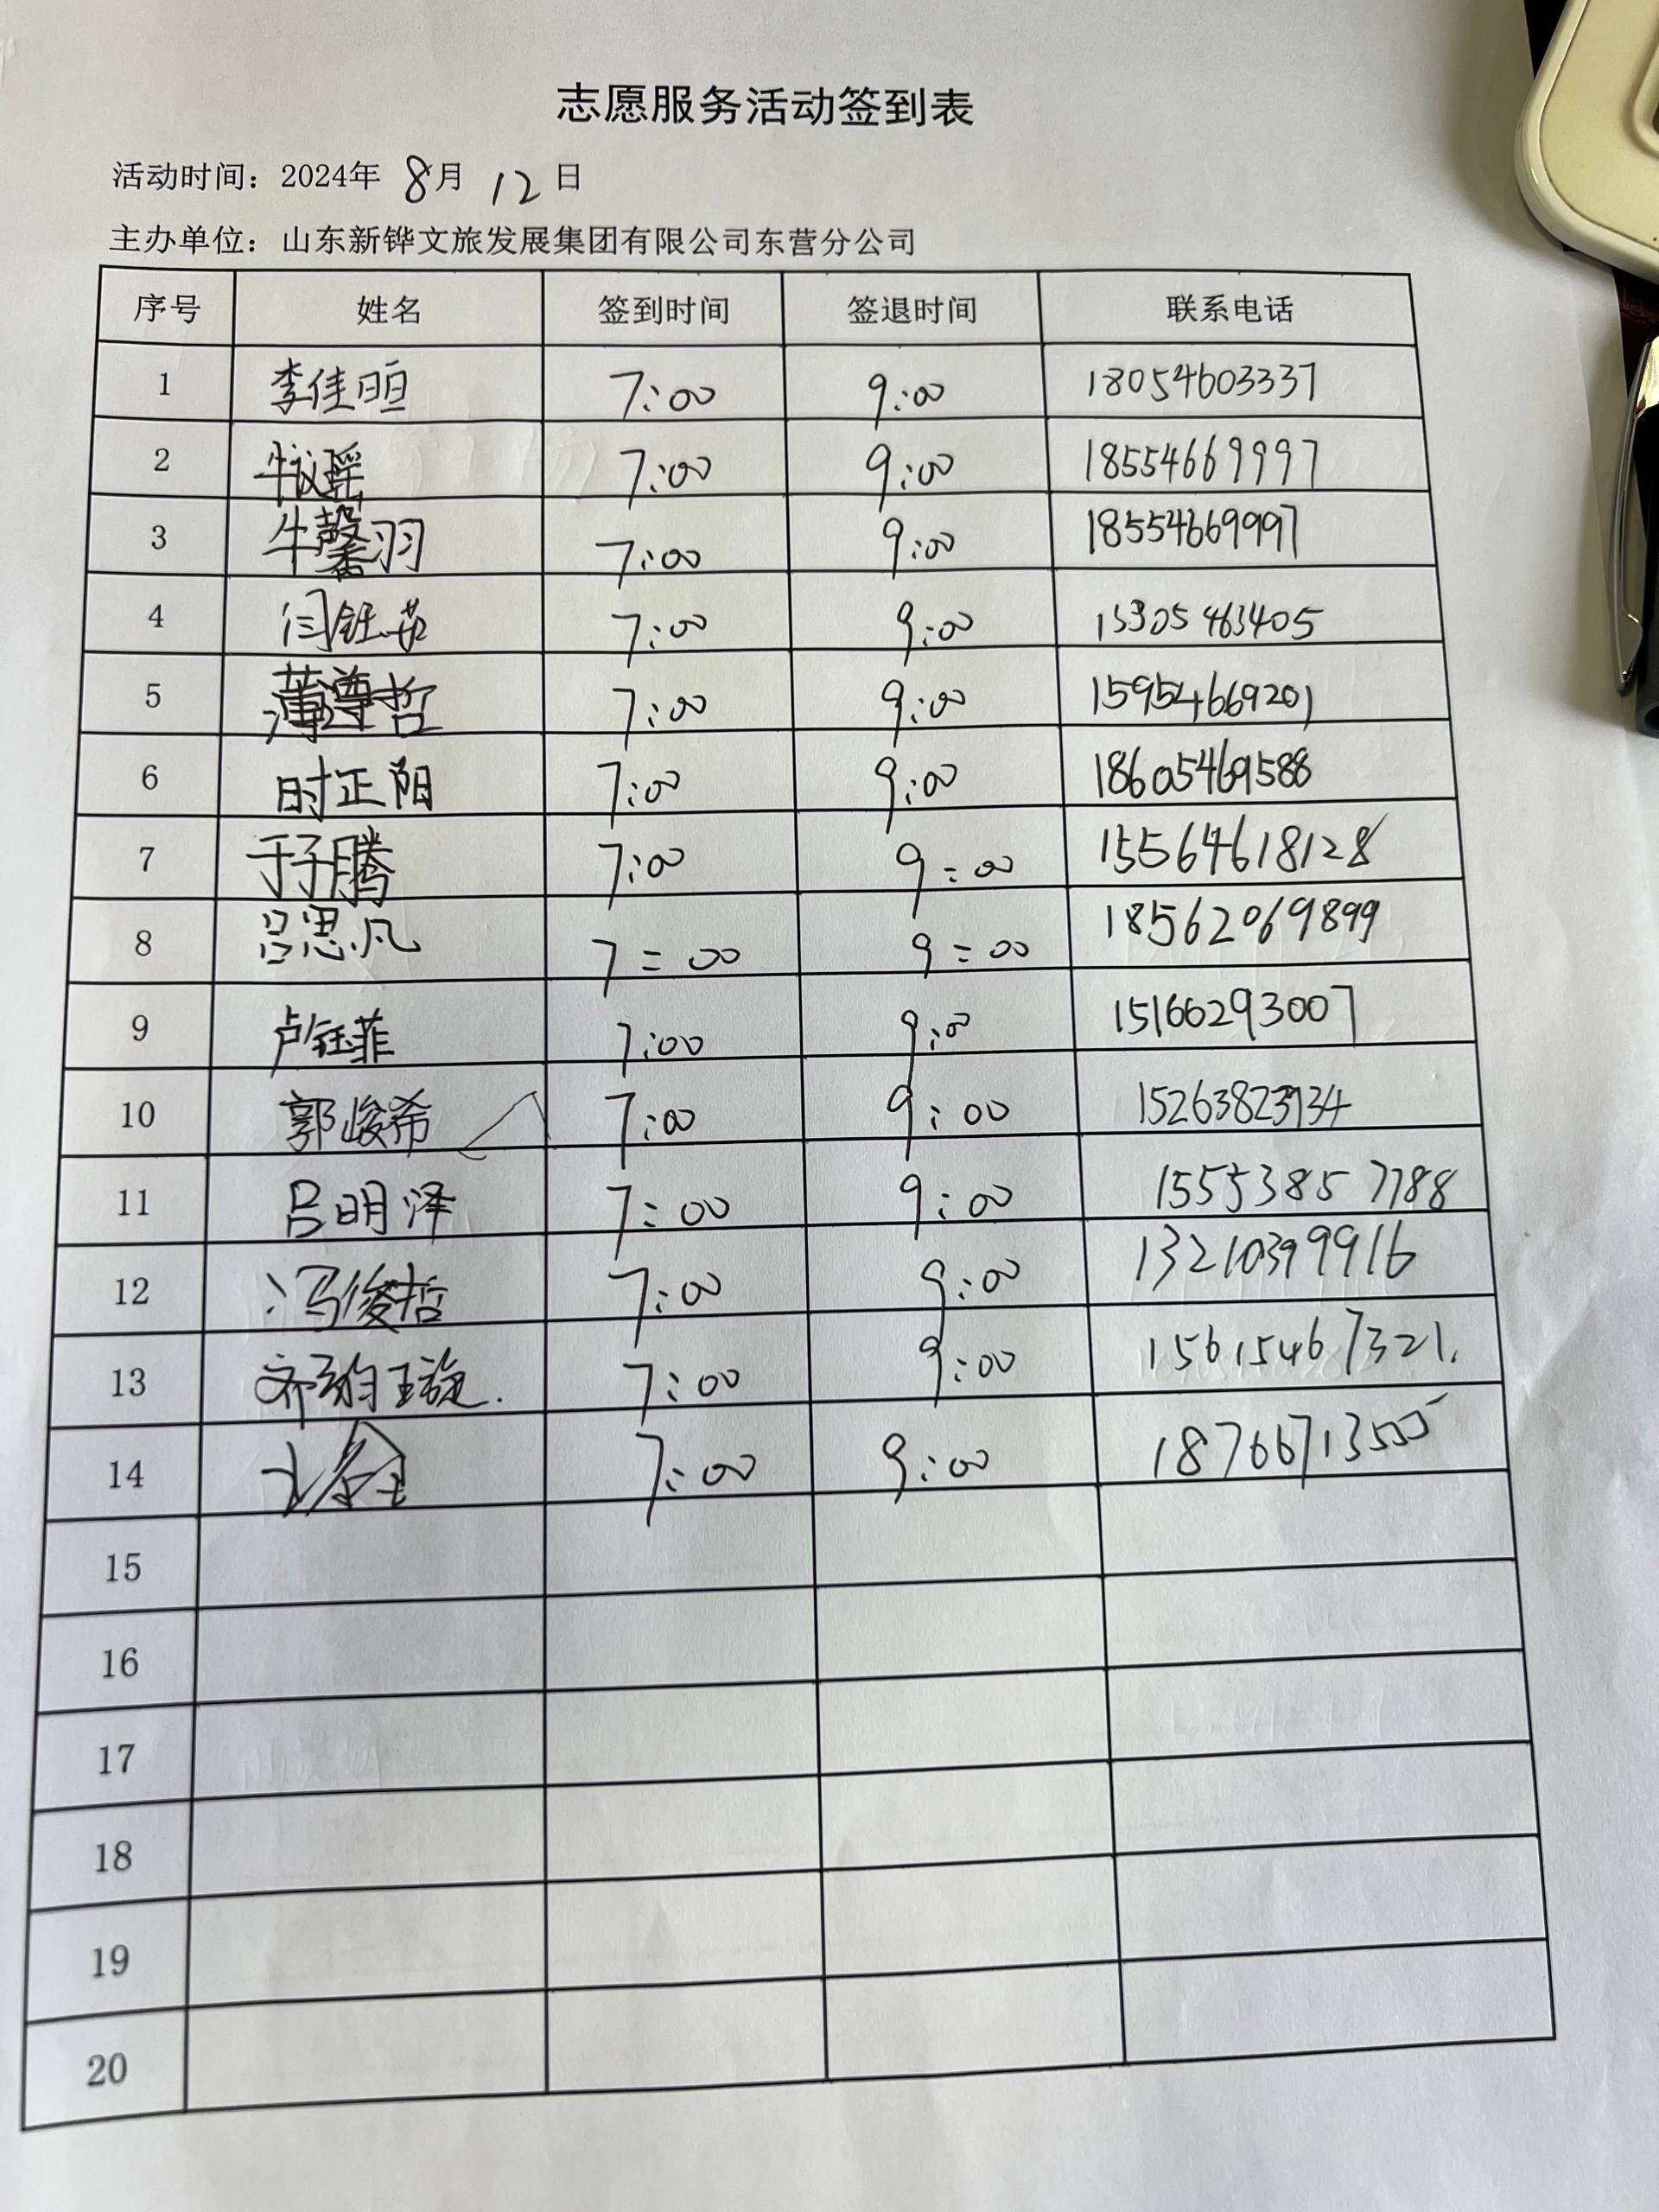 志愿服务活动签到表
活动时间：2024年 8月 12日
主办单位：山东新铧文旅发展集团有限公司东营分公司
序号 姓名 签到时间 签退时间 联系电话
1 李佳昍 7:00 9:00 18054603337
2 牛议瑶 7:00 9:00 18554669997
3 牛馨羽 7:00 9:00 18554669997
4 闫钰茹 7:00 9:00 15305463405
5 薄尊哲 7:00 9:00 15954669201
6 时正阳 7:00 9:00 18605469588
7 于子腾 7:00 9:00 15564618128
8 吕思凡 7:00 9:00 18562069899
9 卢钰菲 7:00 9:00 15166293007
10 郭峻希 7:00 9:00
11 吕明泽 7:00 9:00 15553857788
12 冯俊哲 7:00 9:00 13210399916
13 7:00 9:00 15615467321.
14 7:00 9:00 18766713555
15
16
17
18
19
20